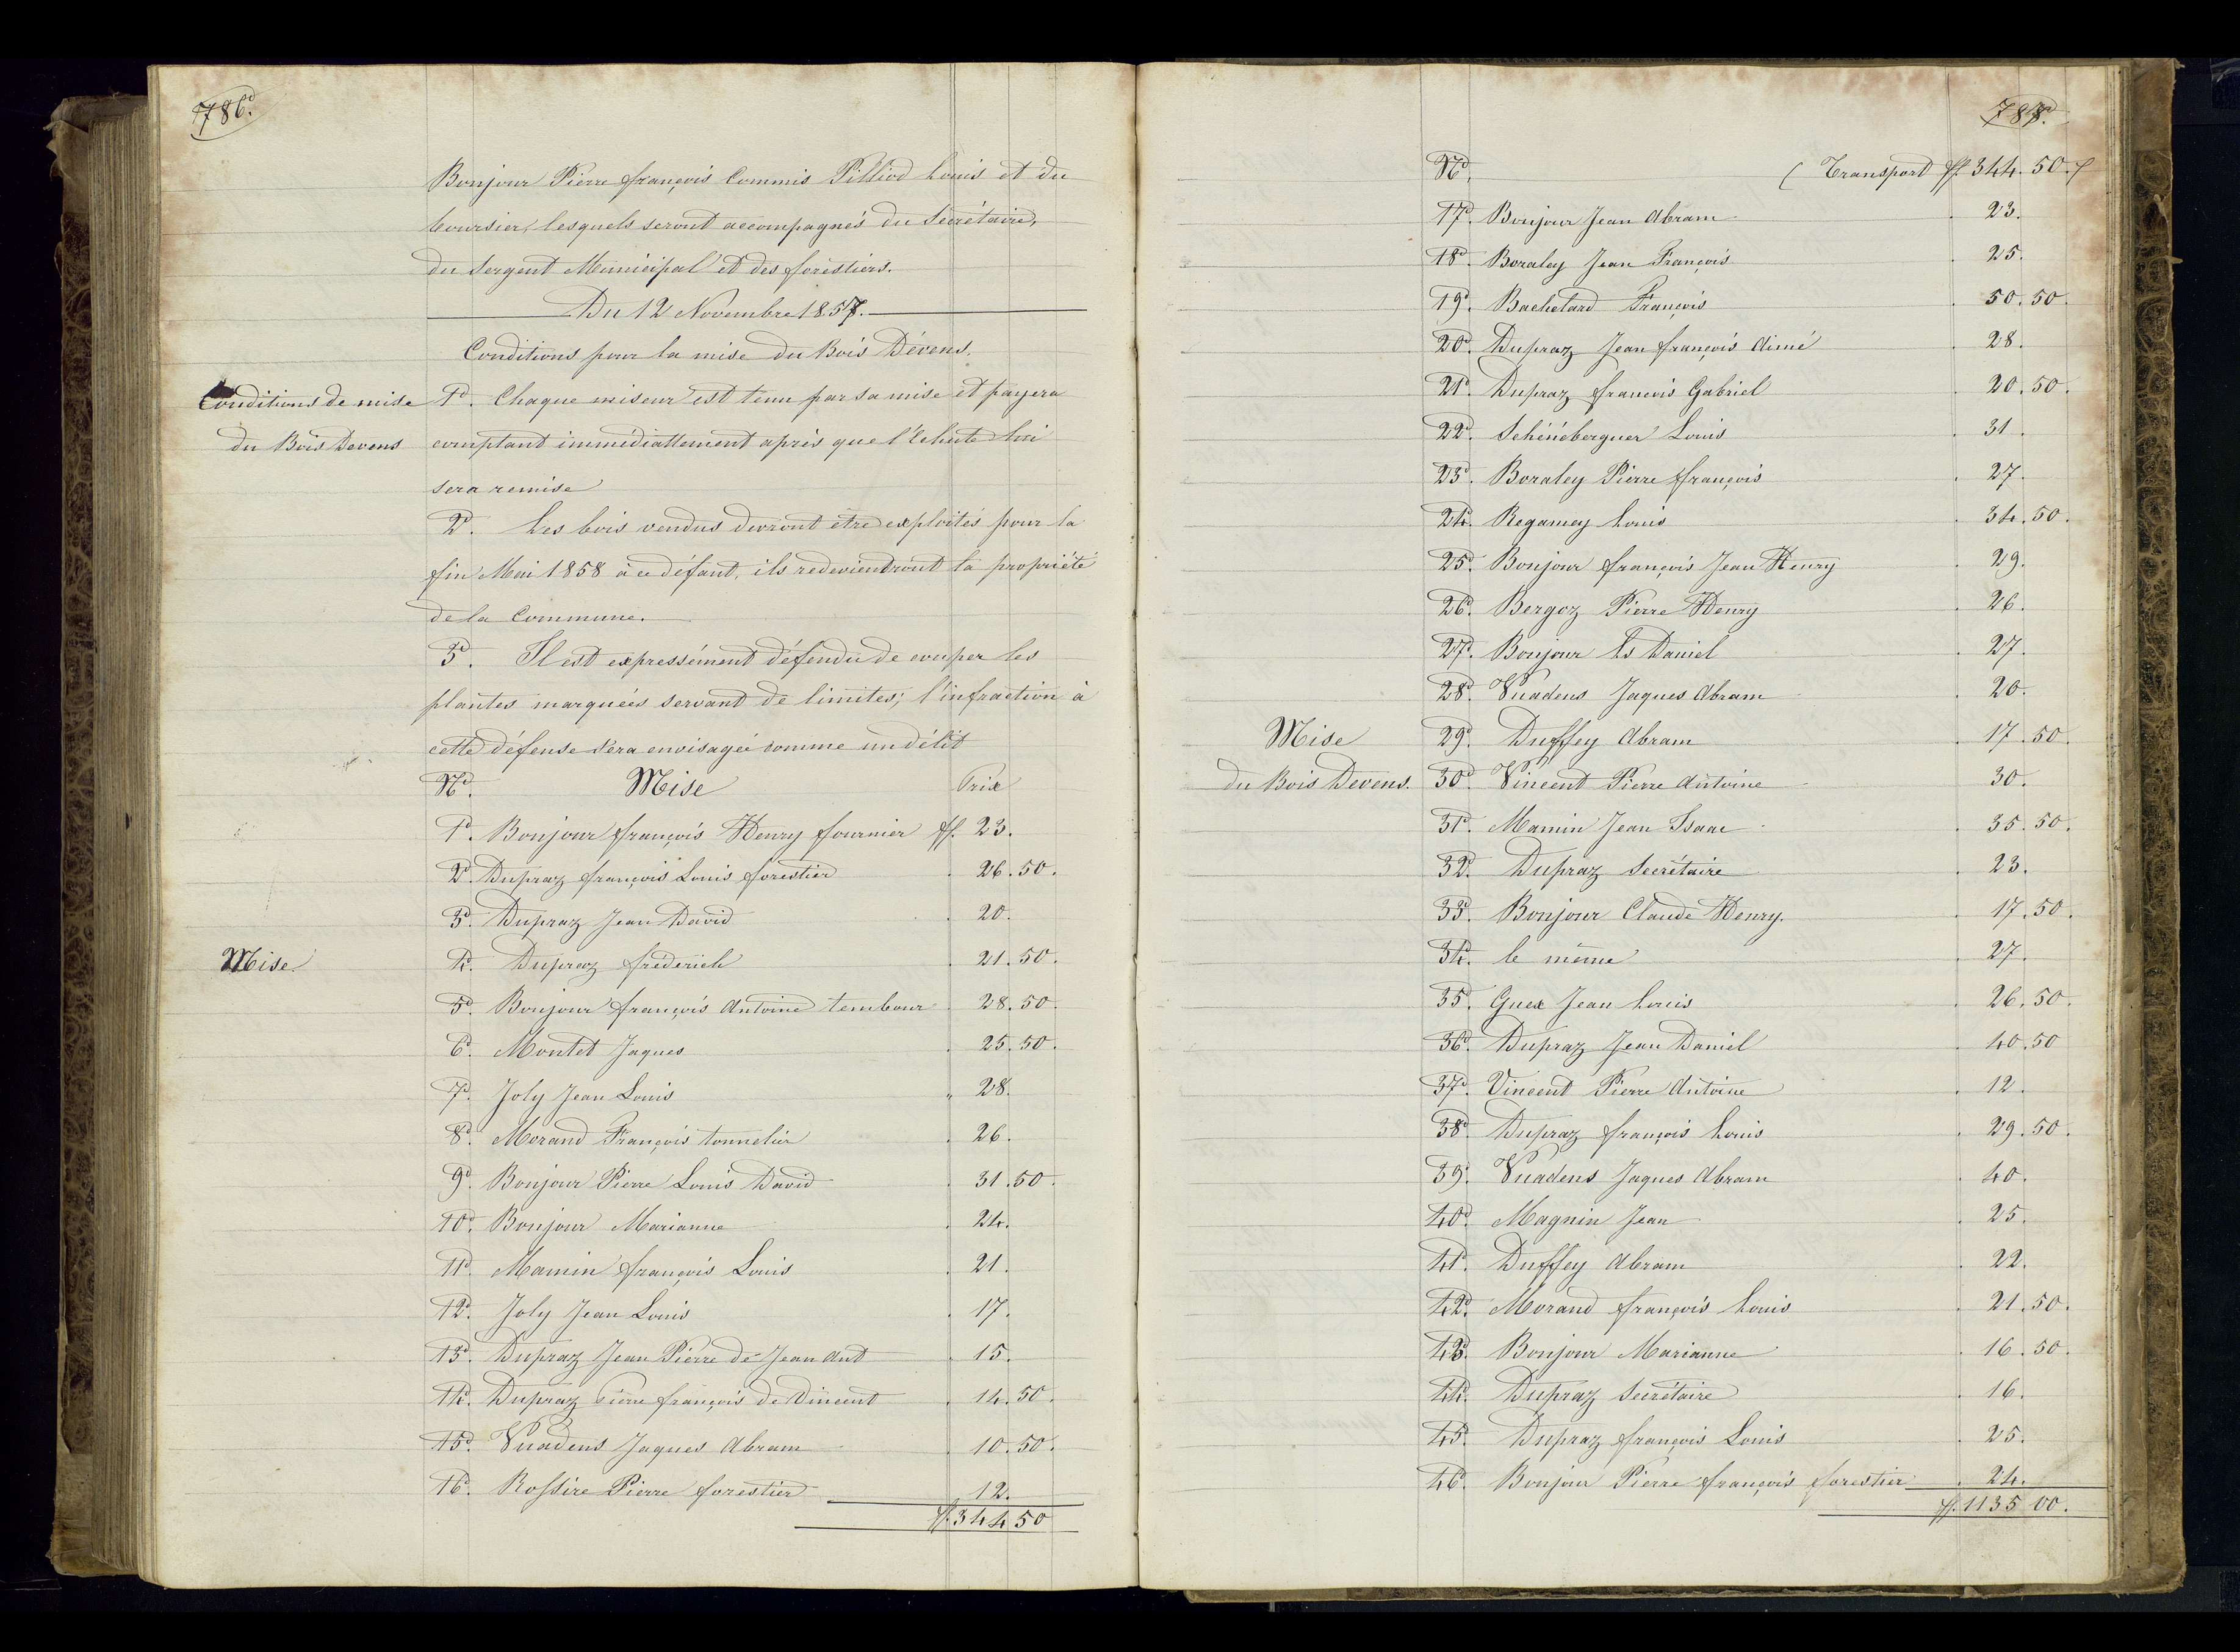 786.
Bonjour Pierre françois Commis Pilliod Louis et du
boursier, lesquels seront accompagnés du Secrétaire,
du Sergent Municipal et des forestiers.
Du 12 Novembre 1857.
Conditions pour la mise du Bois Dévens.
Conditions de mise
du Bois Devens
1°. Chaque miseur est tenu par sa mise et payera
comptant immédiattement après que l'échute lui
sera remise
2°. Les bois vendus devront être exploités pour la
fin Mai 1858 à ce défaut, ils redeviendront la propriété
de la Commune.
3°. Il est expressément défendu de couper les
plantes marquées servant de limites; l'infraction à
cette défense sera envisagée comme un délit
N°. Mise Prix
1°. Bonjour françois Henry fournier ff. 23.
2°. Dupraz françois Louis forestier . 26.50.
3°. Dupraz Jean David . 20.
Mise.
4°. Dupraz fréderich . 21.50.
5°. Bonjour françois Antoine tembour . 28.50.
6°. Montet Jaques . 25.50.
7°. Joly Jean Louis " 28.
8°. Morand François tonnelier . 26.
9°. Bonjour Pierre Louis David . 31.50.
10°. Bonjour Marianne . 24.
11°. Mamin françois Louis . 21.
12°. Joly Jean Louis . 17.
13°. Dupraz Jean Pierre de Jean Ant . 15.
14°. Dupraz Pierre françois de Vincent . 14.50.
15°. Vuadens Jaques Abram . 10.50.
16°. Rossire Pierre forestier 12.
ff. 344 50
787.
N°. ( Transport ff. 344.50.)
17°. Bonjour Jean Abram . 23.
18°. Boraley Jean François . 25.
19°. Bachelard François . 50.50.
20°. Dupraz Jean françois Aimé . 28.
21°. Dupraz françois Gabriel . 20.50.
22°. Schénéberguer Louis . 31.
23°. Boraley Pierre françois . 27.
24°. Regamey Louis . 34.50.
25°. Bonjour françois Jean Henry . 29.
26°. Bergoz Pierre Henry . 26.
27°. Bonjour Ls Daniel . 27.
28°. Vuadens Jaques Abram . 20.
Mise
du Bois Devens.
29°. Duffey Abram . 17.50.
30°. Vincent Pierre Antoine . 30.
31°. Mamin Jean Isaac . 35.50.
32°. Dupraz Secrétaire . 23.
33°. Bonjour Claude Henry. . 17.50.
34°. le même . 27.
35°. Guex Jean Louis . 26.50.
36°. Dupraz Jean Daniel . 40.50
37°. Vincent Pierre Antoine . 12.
38°. Dupraz françois Louis . 29.50.
39°. Vuadens Jaques Abram . 40.
40°. Magnin Jean . 25.
41°. Duffey Abram . 22.
42°. Morand françois Louis . 21.50.
43°. Bonjour Marianne . 16.50.
44°. Dupraz Secrétaire . 16.
45°. Dupraz françois Louis . 25.
46°. Bonjour Pierre françois forestier . 24.
ff. 1135 00.